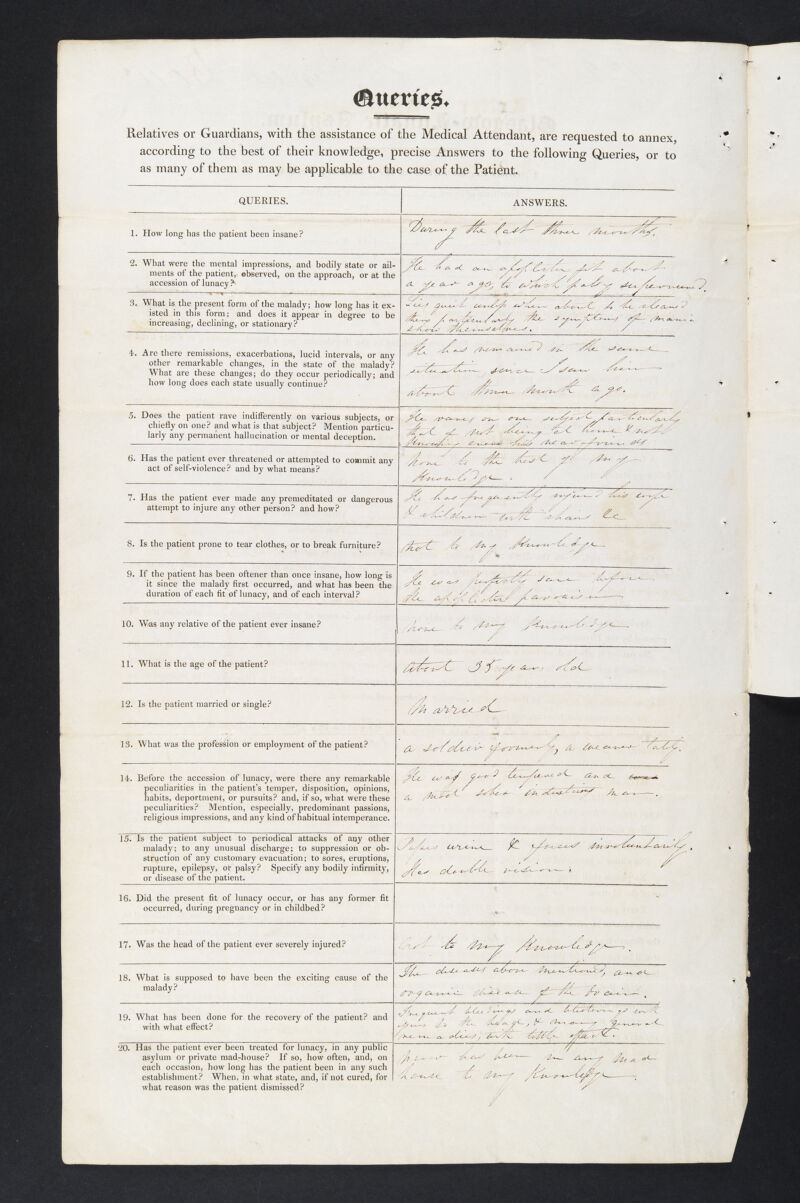 Queries.
Relatives or Guardians, with the assistance of the Medical Attendant, are requested to annex,
according to the best of their knowledge, precise Answers to the following Queries, or to
as many of them as may be applicable to the case of the Patient.
QUERIES.
ANSWERS.
1. How long has the patient been insane?
During the last three months.
2. What were the mental impressions, and bodily state or ail-
ments of the patient, observed, on the approach, or at the
accession of lunacy?
He had an apoplectic fit about
a year ago, to which palsy supervened.
3. What is the present form of the malady; how long has it ex-
isted in this form; and does it appear in degree to be
increasing, declining, or stationary?
Lies quiet until when about to be cleaned
then particularly the symptoms of mania
show themselves.
4. Are there remissions, exacerbations, lucid intervals, or any
other remarkable changes, in the state of the malady?
What are these changes; do they occur periodically; and
how long does each state usually continue?
He has remained in the same
situation since I saw him
about three month ago.
5. Does the patient rave indifferently on various subjects, or
chiefly on one? and what is that subject? Mention particu-
larly any permanent hallucination or mental deception.
He raves on one subject particularly
that of not being at home & not
knowing even his near friends
6. Has the patient ever threatened or attempted to commit any
act of self-violence? and by what means?
None to the best of my
Knowledge.
7. Has the patient ever made any premeditated or dangerous
attempt to injure any other person? and how?
He has frequently injured his wife
& children with &c
8. Is the patient prone to tear clothes, or to break furniture?
Not to my Knowledge
9. If the patient has been oftener than once insane, how long is
it since the malady first occurred, and what has been the
duration of each fit of lunacy, and of each interval?
He was perfectly sane before
the apoplectic
10. Was any relative of the patient ever insane?
None to my Knowledge
11. What is the age of the patient?
About 35 years old
12. Is the patient married or single?
Married
13. What was the profession or employment of the patient?
a soldier formerly, a weaver lately.
14. Before the accession of lunacy, were there any remarkable
peculiarities in the patient's temper, disposition, opinions,
habits, deportment, or pursuits? and, if so, what were these
peculiarities? Mention, especially, predominant passions,
religious impressions, and any kind of habitual intemperance.
He was good tempered and
a most sober industrious man.
15. Is the patient subject to periodical attacks of any other
malady; to any unusual discharge; to suppression or ob-
struction of any customary evacuation; to sores, eruptions,
rupture, epilepsy, or palsy? Specify any bodily infirmity,
or disease of the patient.
Passes urine & fæces involuntarily.
Has double vision.
16. Did the present fit of lunacy occur, or has any former fit
occurred, during pregnancy or in childbed?
17. Was the head of the patient ever severely injured?
Not to my Knowledge.
18. What is supposed to have been the exciting cause of the
malady?
The diseases above mentioned, and
organic disease of the brain.
19. What has been done for the recovery of the patient? and
with what effect?
Frequent bleedings and blisterings with
to the head, & many general
remedies, with little effect.
20. Has the patient ever been treated for lunacy, in any public
asylum or private mad-house? If so, how often, and, on
each occasion, how long has the patient been in any such
establishment? When, in what state, and, if not cured, for
what reason was the patient dismissed?
Never has been in any mad
house to my Knowledge.